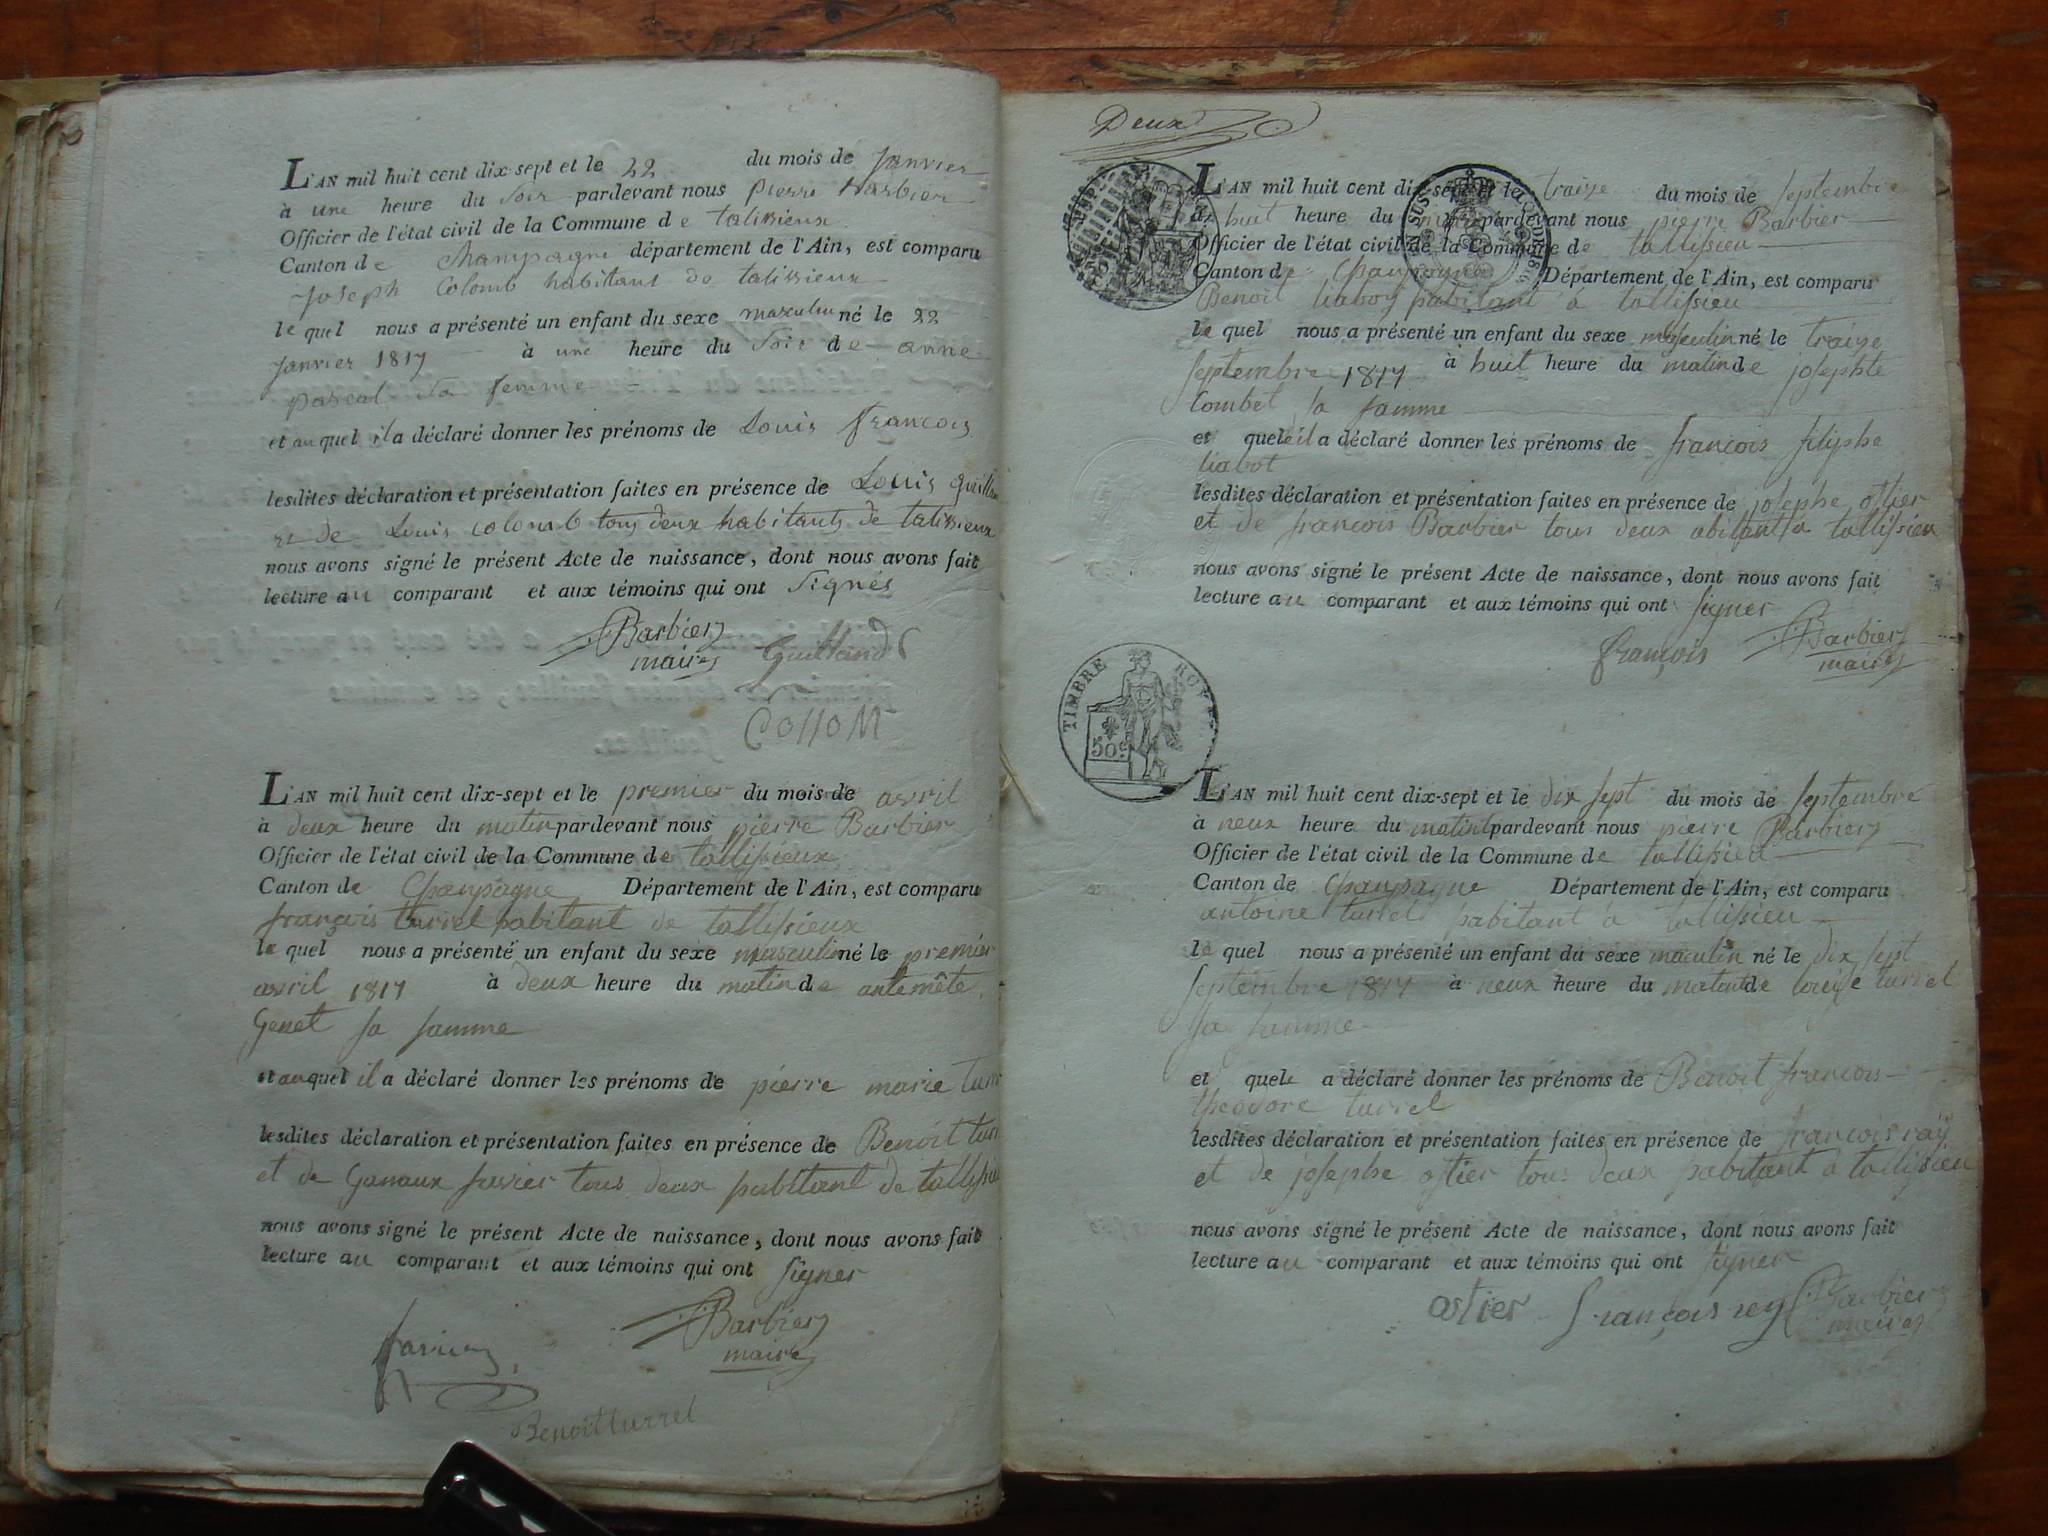 L'AN mil huit cent dix-sept et le 22 du mois de Janvier
à une heure du soir pardevant nous pierre barbier
Officier de l'état civil de la Commune de talissieux
Canton de Champagne département de l'Ain, est comparu
joseph Colomb habittant de talissieux
le quel nous a présenté un enfant du sexe masculin né le 22
janvier 1817 à une heure du soir de anne
pascal sa femme
et au quel il a déclaré donner les prénoms de Louis françois
lesdites déclaration et présentation faites en présence de Louis
et de Louis colomb tous deux habitants de talissieux
nous avons signé le présent Acte de naissance, dont nous avons fait
lecture au comparant et aux témoins qui ont signés
Barbier
maire Guilland
L'AN mil huit cent dix-sept et le premier du mois de avril
à deux heure du matin pardevant nous pierre Barbier
Officier de l'état civil de la Commune de tallisieux
Canton de Champagne Département de l'Ain, est comparu
françois turrel habitant de tallisieux
le quel nous a présenté un enfant du sexe masculin né le premier
avril 1817 à deux heure du matin de
Genet sa famme
et au quel il a déclaré donner les prénoms de pierre marie
lesdites déclaration et présentation faites en présence de Benoit
et de tous deux habitant de
nous avons signé le présent Acte de naissance, dont nous avons fait
lecture au comparant et aux témoins qui ont signer
Barbier
maire
Benoit turrel
Deux
L'AN mil huit cent dix-sept et le traize du mois de septembre
à huit heure du pardevant nous pierre Barbier
Officier de l'état civil de la Commune de tallisieu
Canton de Champagne Département de l'Ain, est comparu
Benoit habitant a tallisieu
le quel nous a présenté un enfant du sexe masculin né le traize
septembre 1817 à huit heure du matin de josephte
Combet sa famme
et quele il a déclaré donner les prénoms de françois filiphe
liabot
lesdites déclaration et présentation faites en présence de josephe ostier
et de françois Barbier tous deux abitant a tallisieu
nous avons signé le présent Acte de naissance, dont nous avons fait
lecture au comparant et aux témoins qui ont signer
françois Barbier
maire
TIMBRE ROYAL
50 c
L'AN mil huit cent dix-sept et le dix sept du mois de septembre
à neux heure du matint pardevant nous pierre Barbier
Officier de l'état civil de la Commune de tallisieu
Canton de Champagne Département de l'Ain, est comparu
antoine turrel habitant a tallisieu
le quel nous a présenté un enfant du sexe maculin né le dix sept
septembre 1817 à neux heure du matint de turrel
sa famme
et quele a déclaré donner les prénoms de Benoit françois
theodore turrel
lesdites déclaration et présentation faites en présence de françois ray
et de josephe ostier tous deux habitant a tallisieu
nous avons signé le présent Acte de naissance, dont nous avons fait
lecture au comparant et aux témoins qui ont signer
ostier françois rey Barbier
maire